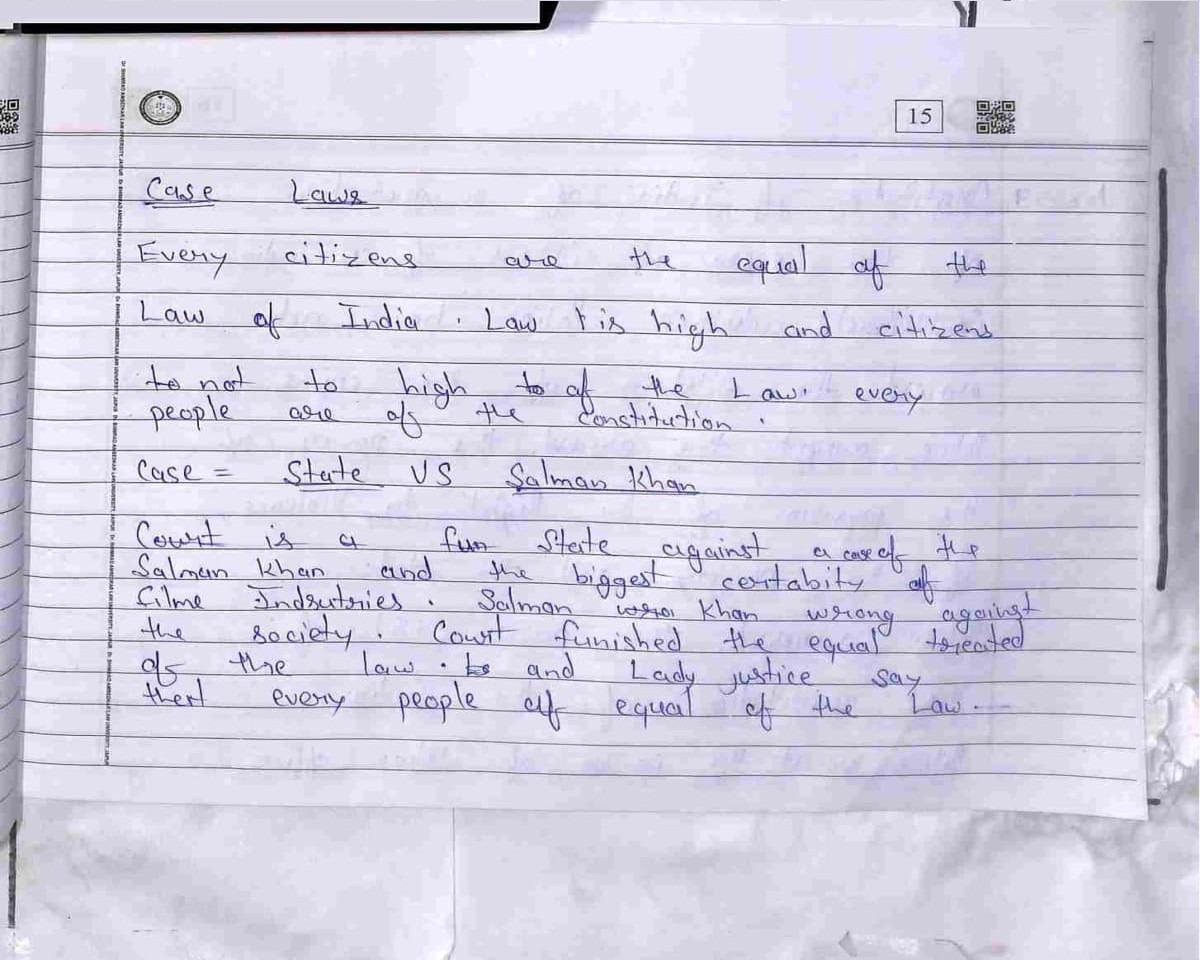 15
Case Laws
Every citizens are the equal of the
Law of India . Law is high and citizens
to not to high to of the Law. every
people are of the constitution .
Case = State VS Salman Khan
Court is a fun State against a case of the
Salman Khan and the biggest ceritabity of
filme Indsutries . Salman Khan wrong against
the society . Court funished the equal treated
of the law . and Lady justice say
thet every people of equal of the Law .